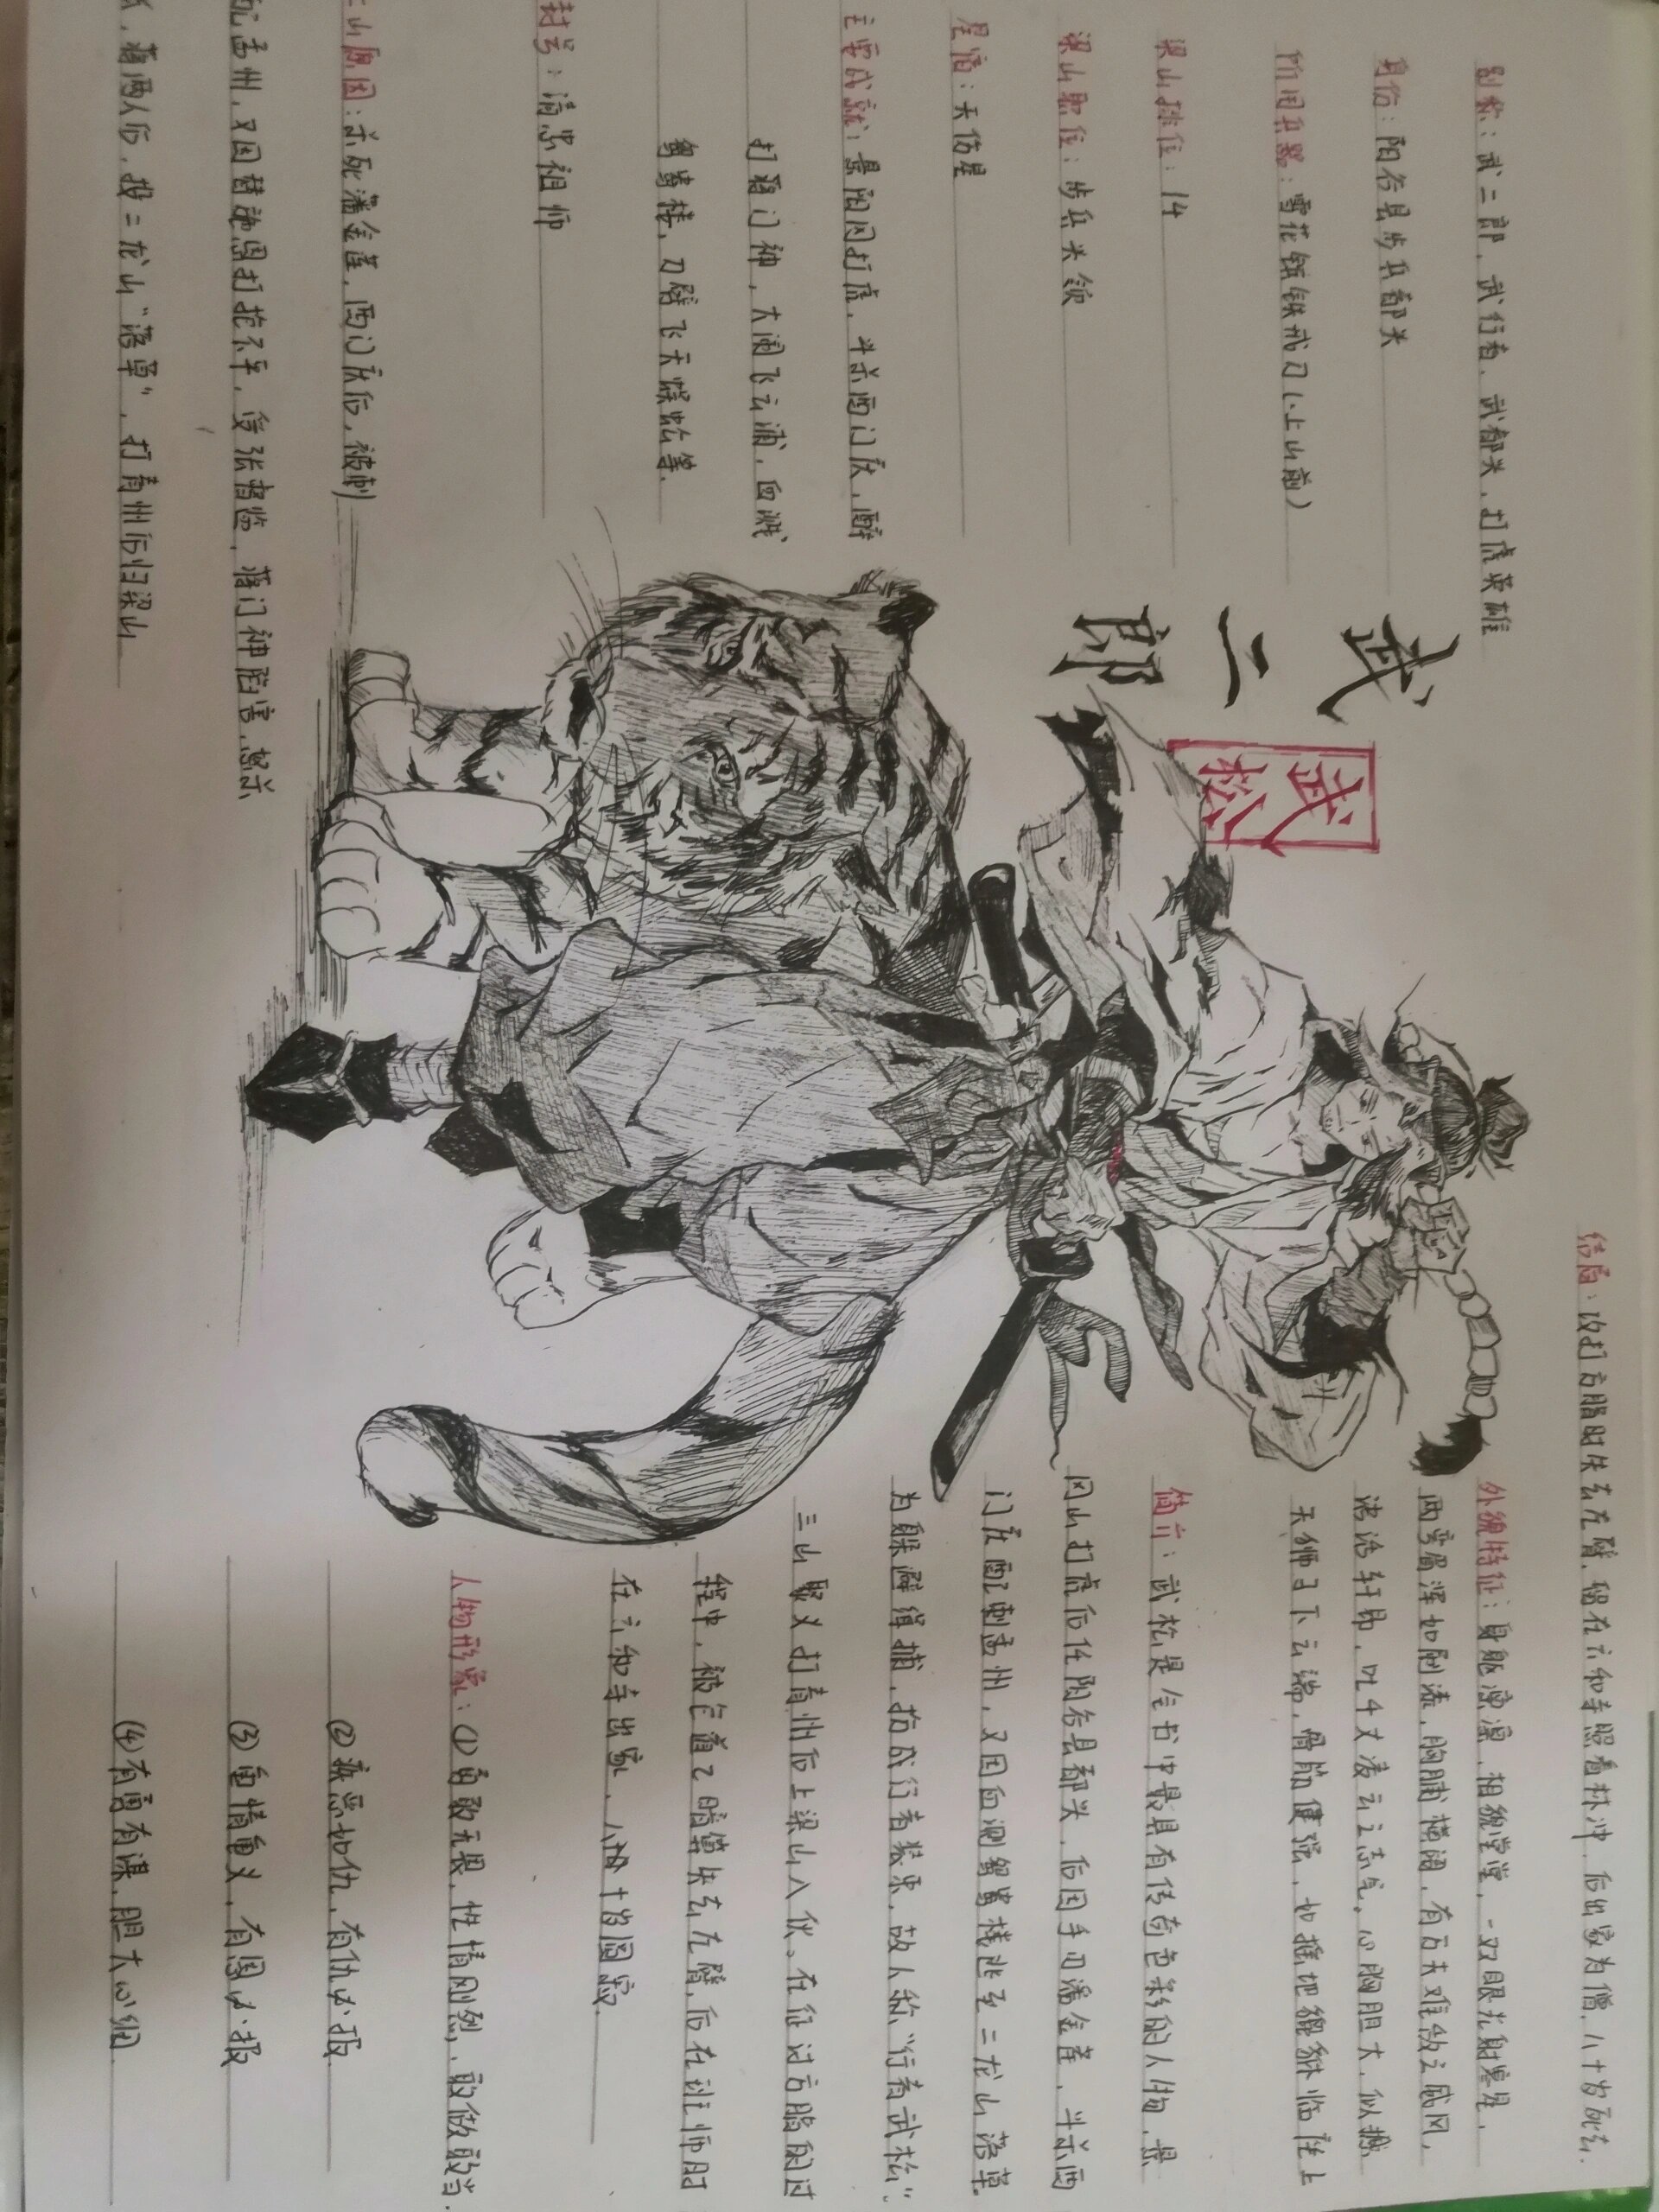 结局：攻打方腊时失去左臂，留在六和寺照看林冲，后出家为僧，八十岁死去.
别称：武二郎，武行者，武都头，打虎英雄
身份：阳谷县步兵都头
所用兵器：雪花镔铁戒刀（上山前）
梁山排位：14
梁山职位：步兵头领
星宿：天伤星
主要成就：景阳冈打虎，斗杀西门庆，醉
打蒋门神，大闹飞云浦，血溅
鸳鸯楼，刀劈飞天蜈蚣等.
封号：清忠祖师
山原因：杀死潘金莲，西门庆后，被刺
孟州，又因替施恩打抱不平，受张都监，蒋门神陷害，怒杀
蒋两人后，投二龙山“落草”，打青州后归梁山
武二郎
武松
外貌特征：身躯凛凛，相貌堂堂，一双眼光射寒星，
两弯眉浑如刷漆，胸脯横阔，有万夫难敌之威风，
语话轩昂，吐千丈凌云之志气，心胸胆大，似撼
天狮子下云端，骨筋健强，如摇地貔貅临座上
简介：武松是全书中最具有传奇色彩的人物，景
冈山打虎后任阳谷县都头，后因手刃潘金莲，斗杀西
门庆配刺孟州，又因血溅鸳鸯楼逃至二龙山落草.
为躲避缉捕，扮成行者装束，故人称“行者武松”.
三山聚义打青州后上梁山入伙。在征讨方腊的过
程中，被包道乙暗算失去左臂，后在班师时
在六和寺出家，八十岁圆寂.
人物形象：(1)勇敢无畏，性情刚烈，敢做敢当.
(2)疾恶如仇，有仇必报
(3)重情重义，有恩必报
(4)有勇有谋，胆大心细.